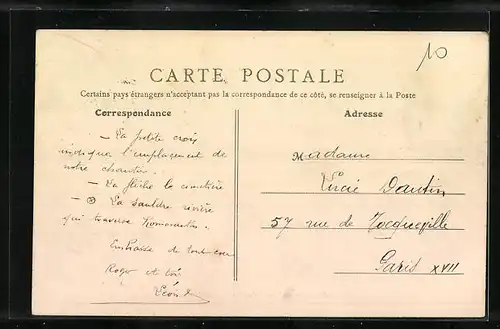 10
CARTE POSTALE
Certains pays étrangers n'acceptant pas la correspondance de ce côté, se renseigner à la Poste
Correspondance
Adresse
— La petite croix
indique l'emplacement de
notre chantier.
— La flèche le cimetière
— La sauldre rivière
qui traverse Romorantin.
Embrasse de tout cœur
Roger et toi
Léon
Madame
Lucie Dantin
57 rue de Tocqueville
Paris XVII